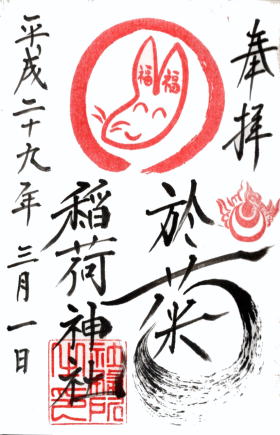 奉拝
於菊
稲荷神社
福福
平成二十九年三月一日